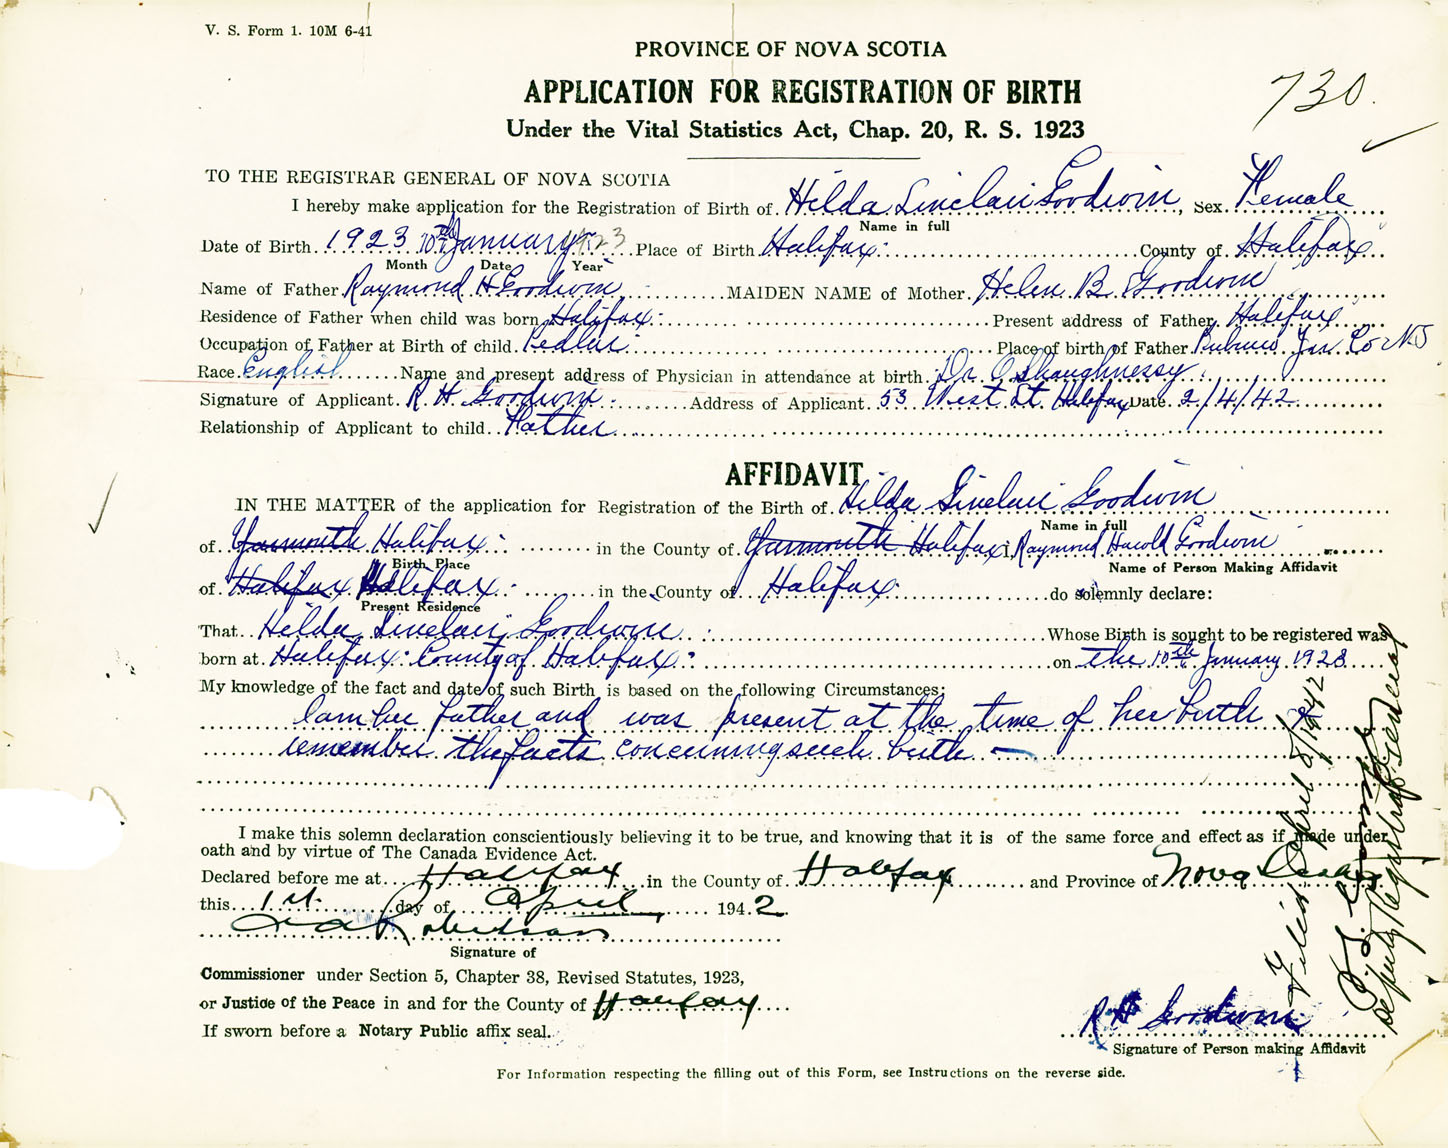 V. S. Form 1. 10M 6-41
PROVINCE OF NOVA SCOTIA
APPLICATION FOR REGISTRATION OF BIRTH
730.
Under the Vital Statistics Act, Chap. 20, R. S. 1923
TO THE REGISTRAR GENERAL OF NOVA SCOTIA
I hereby make application for the Registration of Birth of Hilda Sinclair Goodwin, Sex Female
Name in full
Date of Birth 1923 10th January 1923 Place of Birth Halifax County of Halifax
Month Date Year
Name of Father Raymond H Goodwin MAIDEN NAME of Mother Helen B Goodwin
Residence of Father when child was born Halifax Present address of Father Halifax
Occupation of Father at Birth of child Pedlar Place of birth of Father Pubnico Yar Co NS
Race English Name and present address of Physician in attendance at birth Dr. O Shaughnessy
Signature of Applicant R H Goodwin Address of Applicant 53 West St Halifax Date 2/4/42
Relationship of Applicant to child Father
AFFIDAVIT
IN THE MATTER of the application for Registration of the Birth of Hilda Sinclair Goodwin
Name in full
of Yarmouth Halifax in the County of Yarmouth Halifax I, Raymond Harold Goodwin
Birth Place Name of Person Making Affidavit
of Halifax Halifax in the County of Halifax do solemnly declare:
Present Residence
That Hilda Sinclair Goodwin Whose Birth is sought to be registered was
born at Halifax County of Halifax on the 10th January 1923
My knowledge of the fact and date of such Birth is based on the following Circumstances:
I am her father and was present at the time of her birth &
remember the facts concerning such birth —
I make this solemn declaration conscientiously believing it to be true, and knowing that it is of the same force and effect as if made under
oath and by virtue of The Canada Evidence Act.
Declared before me at Halifax in the County of Halifax and Province of Nova Scotia
this 1st. day of April 1942.
Ira Robertson
Signature of
Commissioner under Section 5, Chapter 38, Revised Statutes, 1923,
or Justice of the Peace in and for the County of Halifax
If sworn before a Notary Public affix seal.
R H Goodwin
Signature of Person making Affidavit
For Information respecting the filling out of this Form, see Instructions on the reverse side.
Filed April 8/1942
Deputy Registrar General